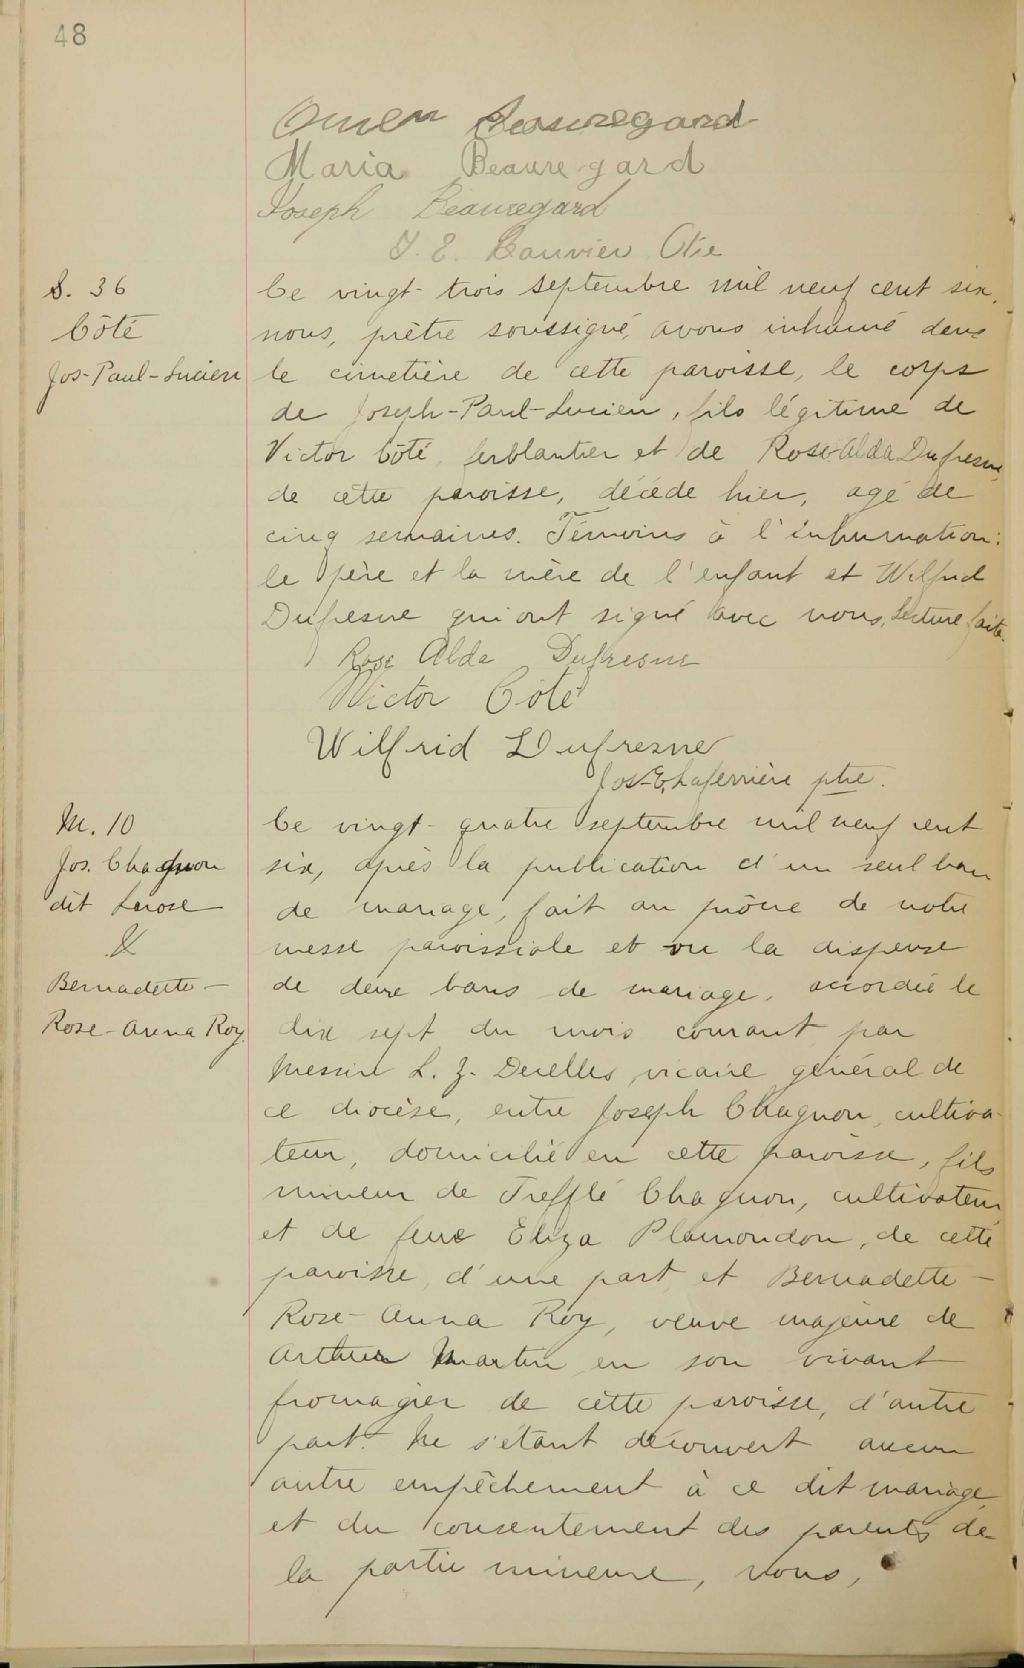 48
Omer Beauregard
Maria Beauregard
Joseph Beauregard
J. E. Ptre
S. 36
Côté
Jos-Paul-Lucien
Ce vingt-trois septembre mil neuf cent six,
nous, prêtre soussigné, avons inhumé dans
le cimetière de cette paroisse, le corps
de Joseph-Paul-Lucien, fils légitime de
Victor Côté, ferblantier et de Rose-Alda Dufresne,
de cette paroisse, décédé hier, agé de
cinq semaines. Témoins à l'inhumation:
le père et la mère de l'enfant et Wilfrid
Dufresne qui ont signé avec nous, Lecture faite.
Rose Alda Dufresne
Victor Côté
Wilfrid Dufresne
Jos-E, Laferrière ptre.
M. 10
Jos. Chagnon
dit Larose
&
Bernadette-
Rose-Anna Roy.
Ce vingt-quatre septembre mil neuf cent
six, après la publication d'un seul ban
de mariage, fait au prône de notre
messe paroissiale et vu la dispense
de deux bans de mariage, accordée le
dix sept du mois courant par
Messire L. Z. vicaire général de
ce diocèse, entre Joseph Chagnon, cultiva-
teur, domicilié en cette paroisse, fils
mineur de Trefflé Chagnon, cultivateur
et de feue Eliza Plamondon, de cette
paroisse, d'une part, et Bernadette-
Rose-Anna Roy, veuve majeure de
Arthur Martin en son vivant
fromagier de cette paroisse, d'autre
part. Ne s'étant découvert aucun
autre empêchement à ce dit mariage,
et du consentement des parents de
la partie mineure, nous,